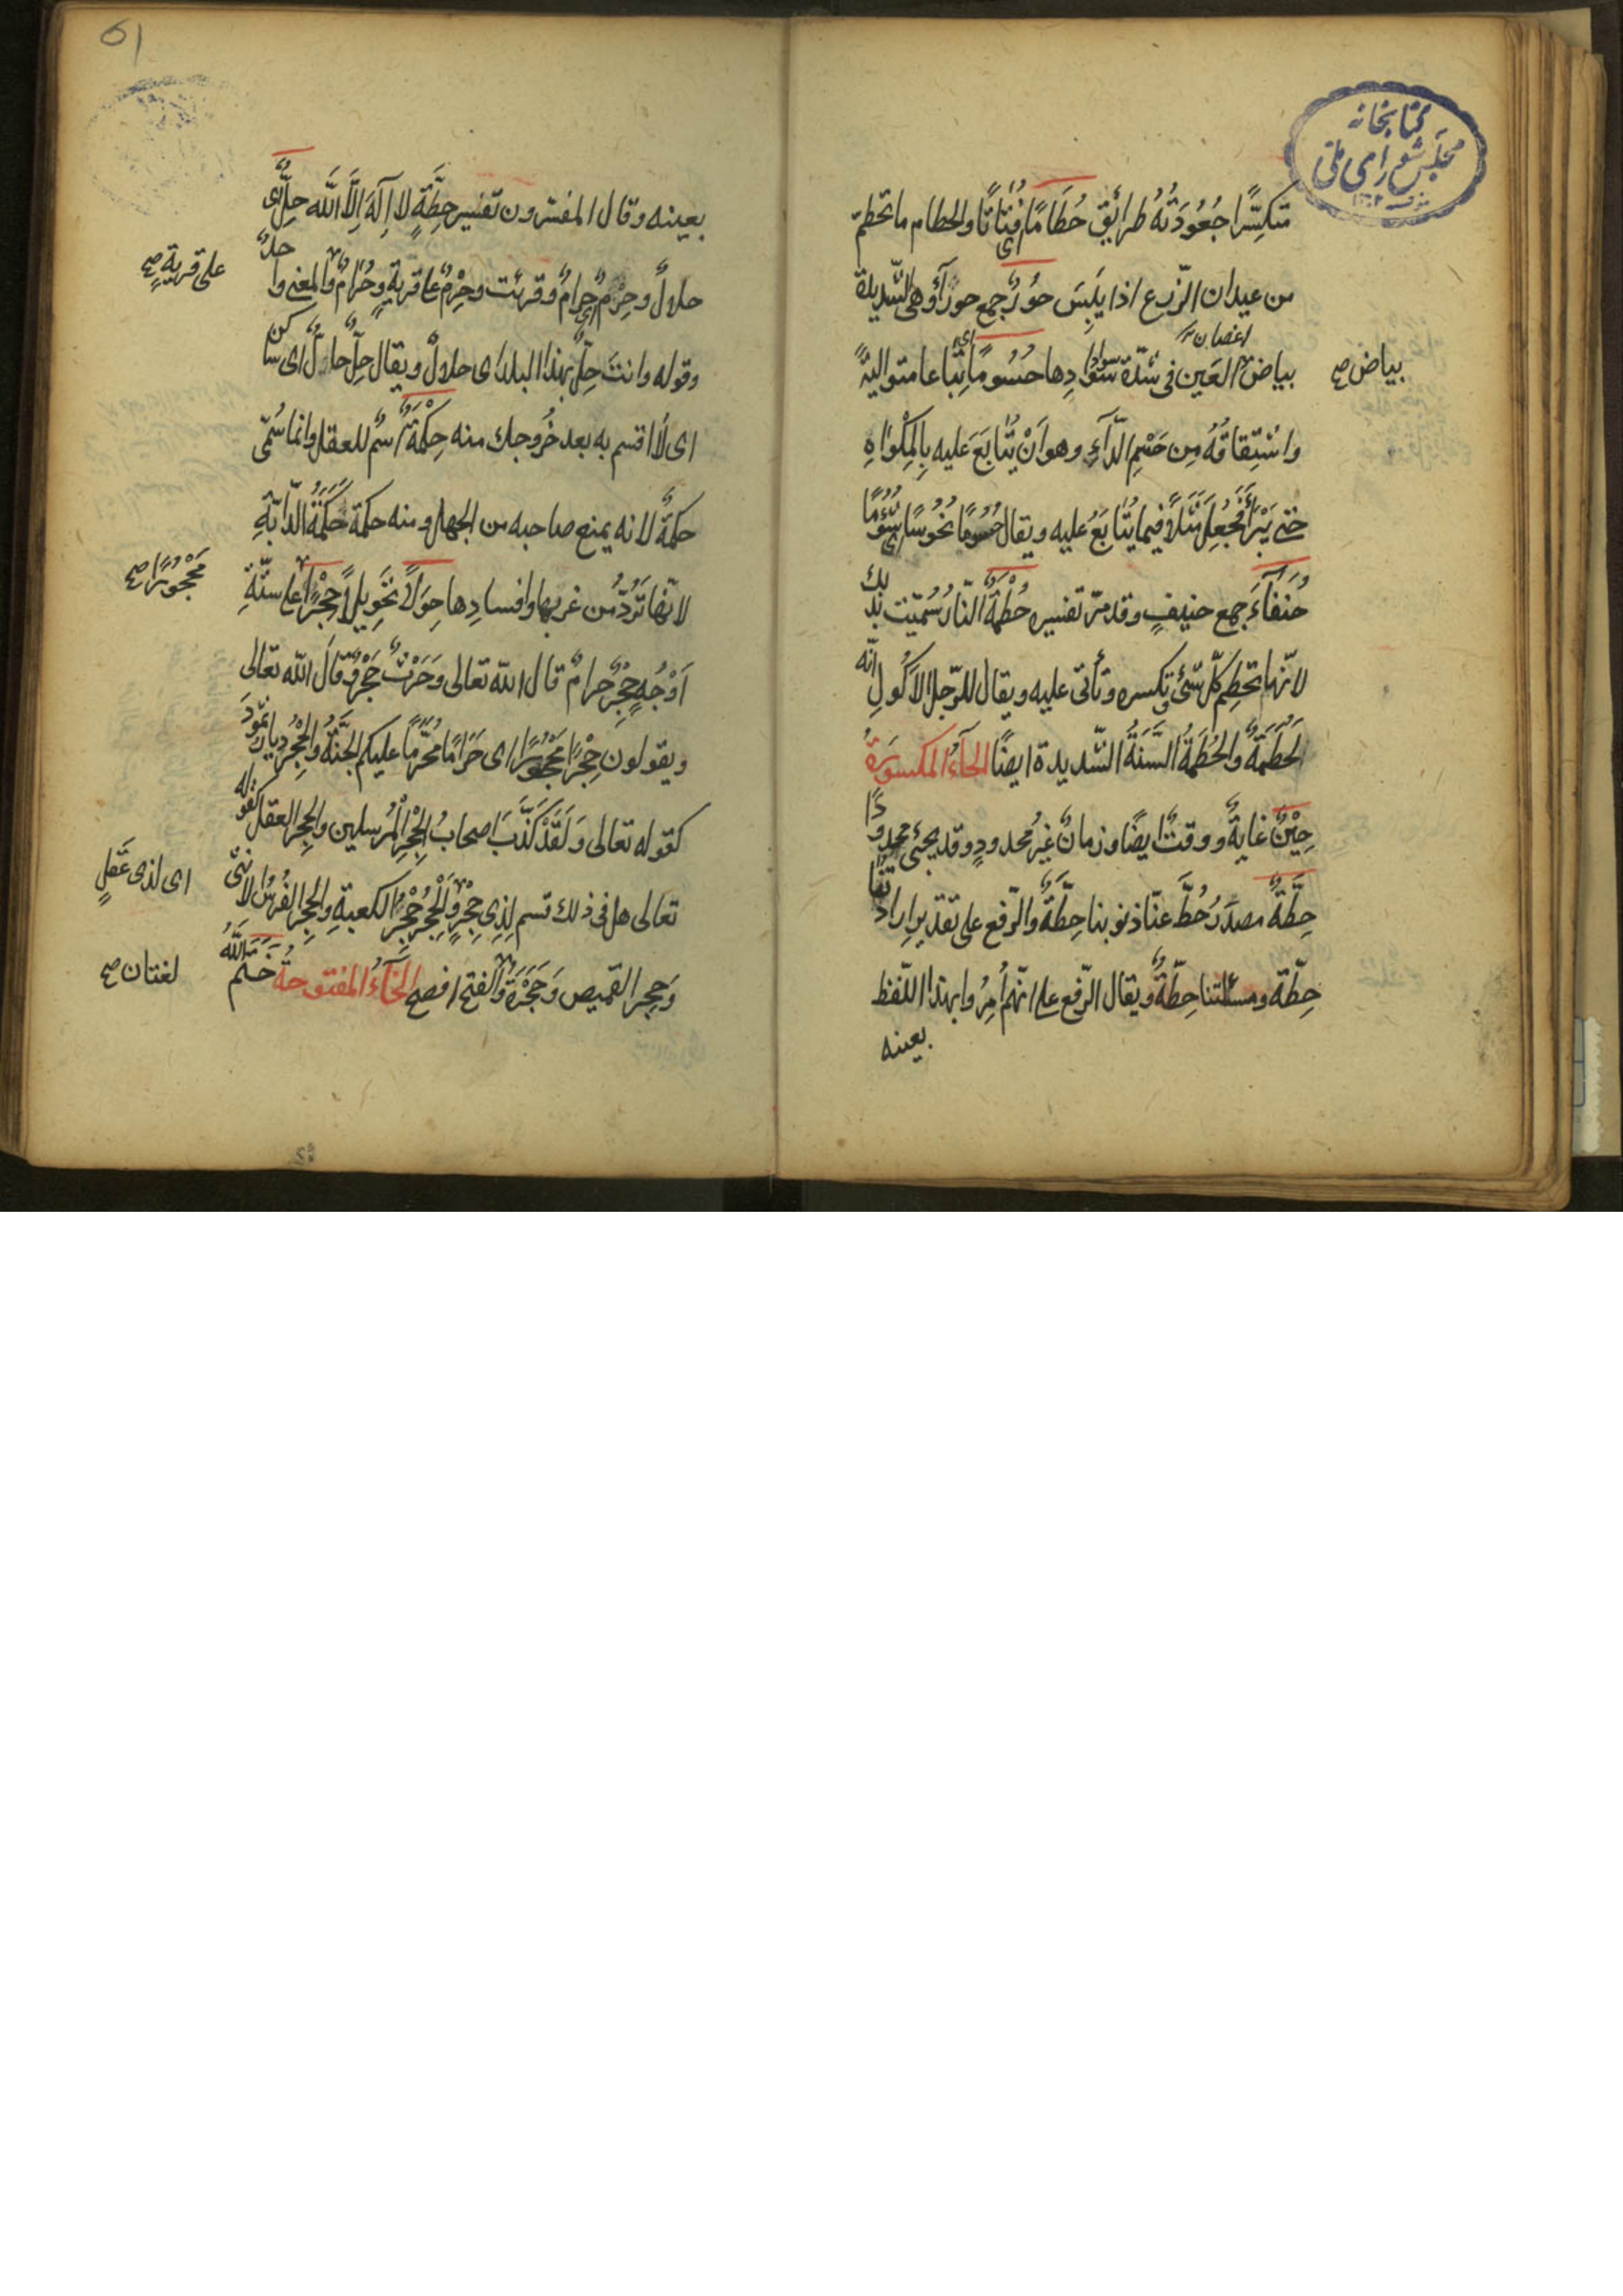 كتابخانه
مجلس شورای ملی
متكسّرا جُعُودَتُهُ طرائق حُطَامًا اى فُتاتًا والحطام ماتحطّم
من عيدان الزّرع اذا يَبِسَ حُورٌ جمع حورآء وهى الشّديدة
اغصان
بياض العَين فى شدّة سوادِها حُسُومًا اى تِباعا متواليةً
بياض صح
واشتِقاقُهُ مِن حَسْمِ الدّآءِ وهو اَنْ يُتابَعَ عليه بِالمِكْواةِ
حتى يَبْرَأَ فجُعِلَ مَثَلاً فيما يُتابَعُ عليه ويقال حُسُومًا نُحُوسًا اى شُؤمًا
حُنَفآءَ جمع حنيفٍ وقد مرّ تفسيره حُطَمَةٌ النّارُ سُمّيت بذلك
لانّها تحطِم كلّ شئ وتكسره وتأتى عليه ويقال للرّجل الاَكُولِ انّه
لَحُطَمَةٌ والحُطَمَةُ السَّنَةُ الشّديدة ايضًا الحآءُ المكسورَةُ
حِيْنٌ غايةٌ ووقتٌ ايضًا وزمانٌ غيرُ محدودٍ وقد يجئ محدودًا
حِطّةٌ مصدَرُ حُطَّ عنّا ذنوبنا حِطّةً والرّفع على تقدير ارادتنا
حِطّة ومسئلتنا حِطّةٌ ويقال الرّفع على انّهم اُمِرُوا بهذا اللّفظ
بعينه
٥١
بعينه وقال المفسّرون تفسير حِطّةٍ لا اِلٰهَ اِلَّا اللّه حِلٌّ اى
حلالٌ وحِرْمٌ اى حرامٌ وقرئت وحِرْمٌ على قريةٍ وحَرَامٌ والمعنى واحدٌ
على قريةٍ صح
وقوله وانت حِلٌّ بهذا البلد اى حلالٌ ويقال حِلٌّ حالٌّ اى ساكن
اى لا اقسم به بعد خُروجك منه حِكْمَةٌ اسمٌ للعقل وانما سُمّى
حكمةً لانه يمنع صاحبه من الجهل ومنه حكمة حَكَمَةُ الدّابّةِ
لانّها تَرُدّ من غربها وافسادِها حِوَلاً تَحْوِيلاً حِجْرًا على ستّةِ
مَحْجُوْرًا صح
اَوْجُهٍ حِجْرٌ حرامٌ قال اللّه تعالى وَحَرْثٌ حِجْرٌ وقَالَ اللّه تعالى
ويقولون حِجْرًا مَحْجُورًا اى حَرَامًا مُحَرَّمًا عليكم الجَنَّةُ والحِجْرُ ديار ثمُودَ
كقوله تعالى وَلَقَدْ كَذَّبَ اصحابُ الْحِجْرِ الْمُرسلين والحِجر العقل كقوله
تعالى هل فى ذلك قسم لِذِى حِجْرٍ والْحِجْرُ حِجْرُ الكعبةِ والحِجر الفُرسُ الاُنثى
اى لذى عَقلٍ
وَحِجر القميص وَحَجْرَهُ والفتح افصح الخآءُ المفتوحةُ خَتَمَ اللّٰهُ
لغتان صح